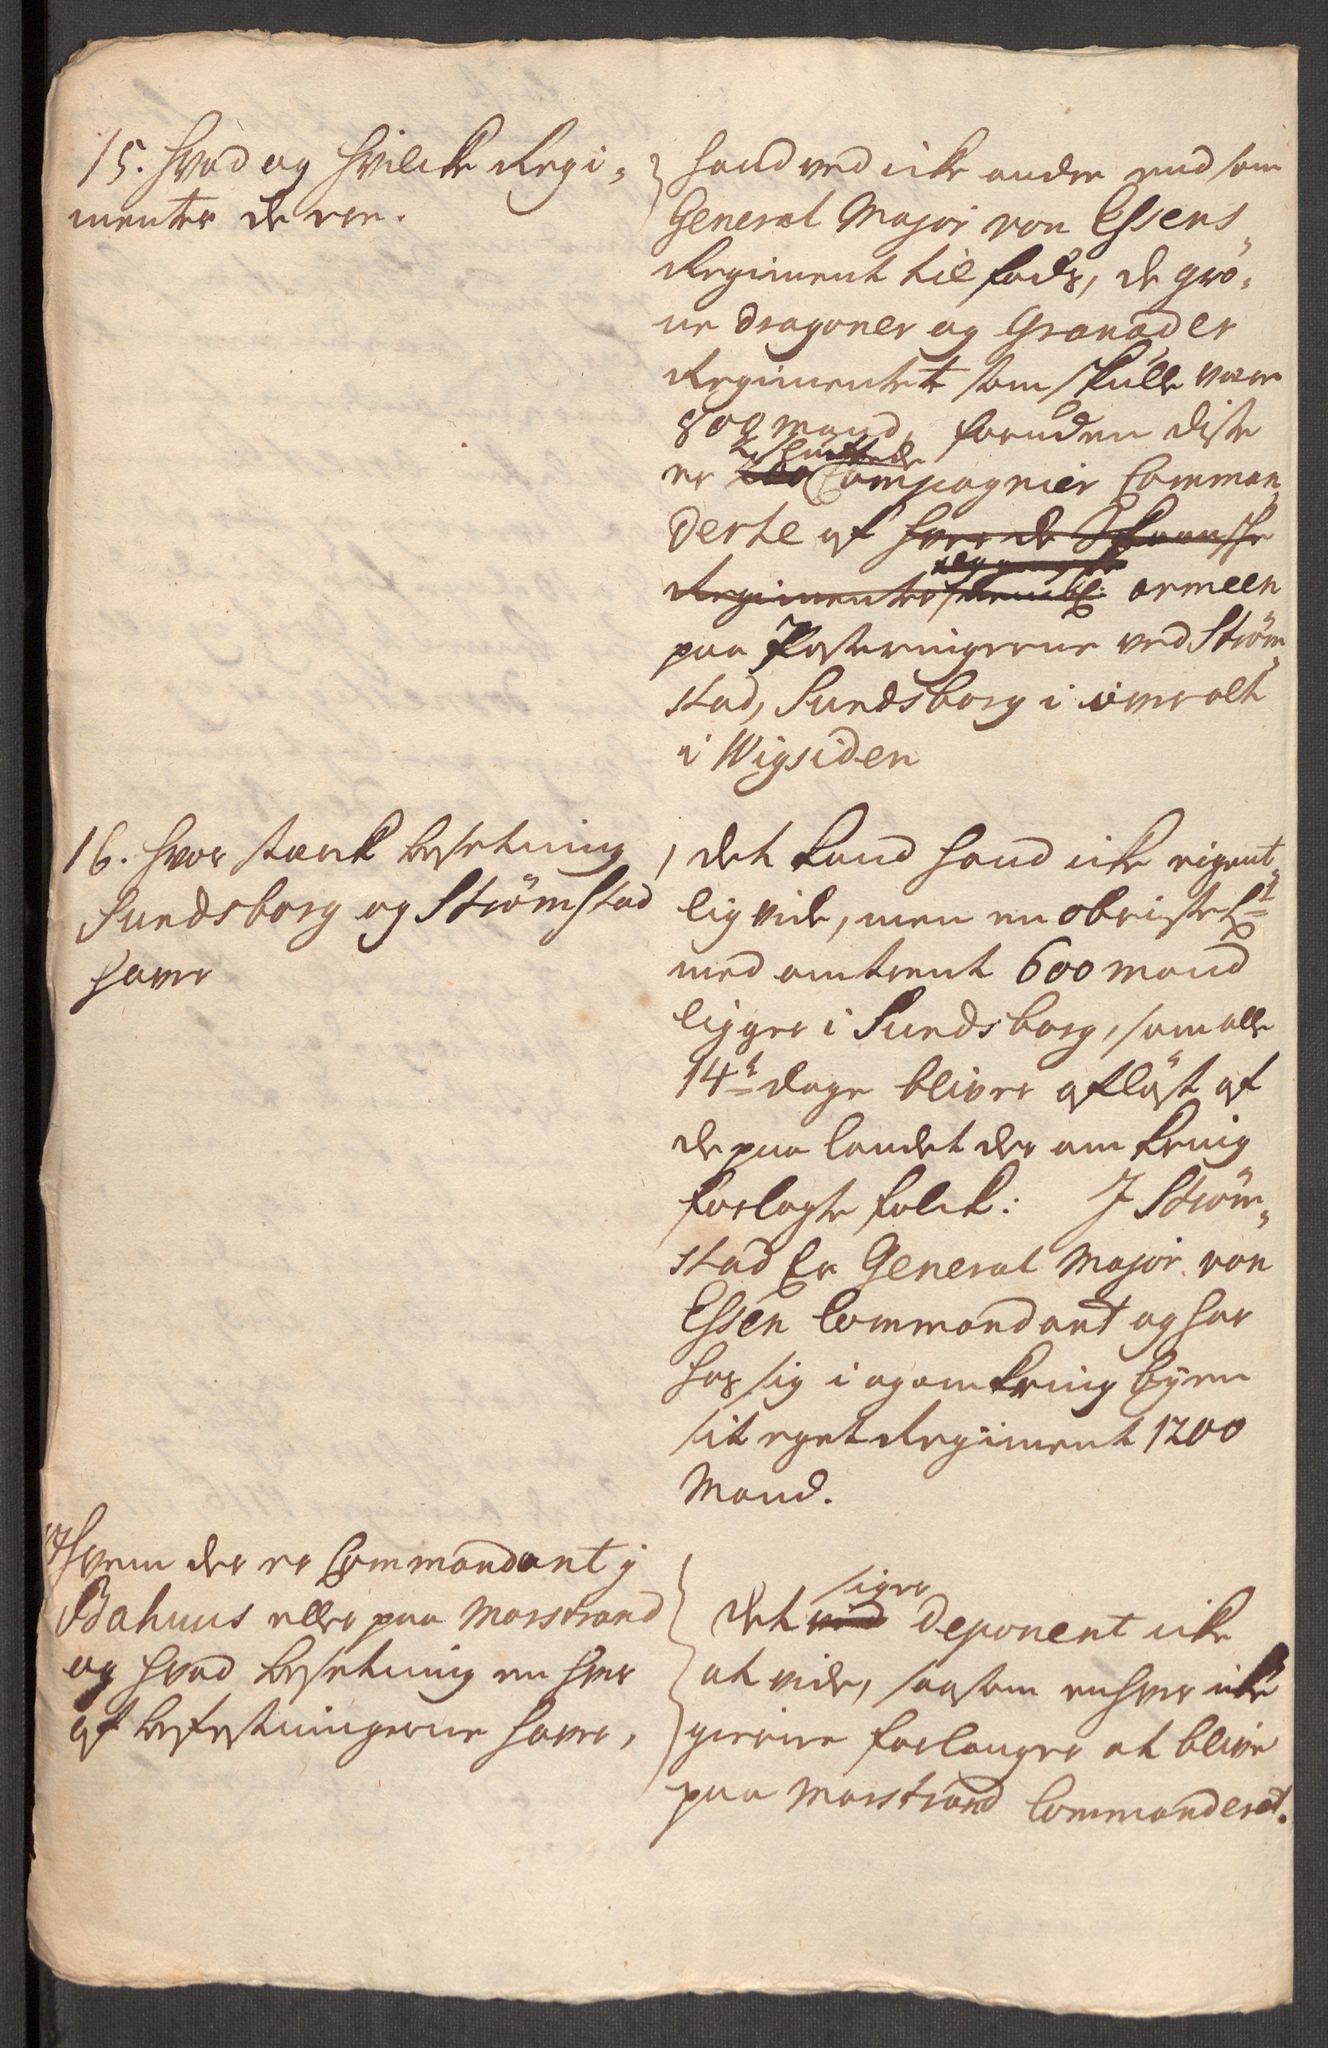 15. Hvad og hvilcke Regi-
menter de ere.
Hand ved icke andre end som
General Major von Essens
Regiment til fods, de grö-
ne dragoner og Granader
Regimentet som skulle være
800 mand, foruden disse
er Compagnier Comman-
derte af hver de Skaansche
Regimenter armeen
paa Posteringerne ved Ström-
stad, Sundsborg i överalt
i Wigsiden
16. Hvor stærk besetning
Sundsborg og Strömstad
haver
det kand hand icke eigent-
lig vide, men en obriste Lt
med omtrent 600 mand
ligger i Sundsborg, som alle
14t dage bliver aflöst af
de paa landet der om kring
forlagte folck: J Ström-
stad Er General Major von
Essen Commandant og har
hos sig i og omkring byen
sit eget Regiment 1200
Mand.
17 Hvem der er Commandant j
Bahuus eller paa Marstrand
og hvad besetning en hver
af befestningerne haver,
siger
det ved Deponent icke
at vide, saasom enhver icke
gierne forlanger at blive
paa Marstrand Commanderet.